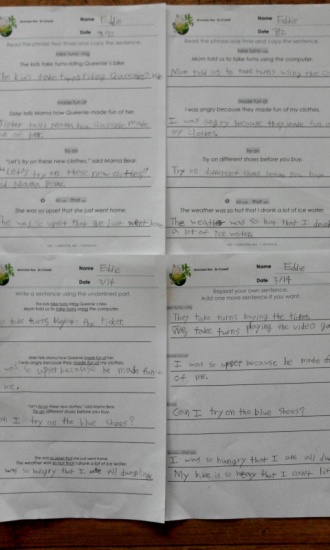 Name Eddie
Date 3/12
Read the phrase two times and copy the sentence.
take turns ~ing
The kids take turns riding Queenie's bike.
The kids take turns riding Queenie's
made fun of
Sister tells Mama how Queenie made fun of her.
Sister tells Mama how Queenie made
fun of her.
try on
"Let's try on these new clothes," said Mama Bear.
"Let's try on these new clothes"
Mama Bear.
so ... that ...
She was so upset that she just went home.
She was so upset that she just went home
Name Eddie
Date
Read the phrase two times and copy the sentence.
take turns ~ing
Mom told us to take turns using the computer.
Mom told us to take turns using the
made fun of
I was angry because they made fun of my clothes.
I was angry because they made fun o
my clothes.
try on
Try on different shoes before you buy.
Try on different shoes before you buy
so ... that ...
The weather was so hot that I drank a lot of ice water.
The weather was so hot that I
a lot of ice water.
Name Eddie
Date 3/14
Write a sentence using the underlined part.
The kids take turns riding Queenie's bike.
Mom told us to take turns using the computer.
take turns buying the ticket.
Sister tells Mama how Queenie made fun of her.
I was angry because they made fun of my clothes.
was so upset because he made fun
me.
"Let's try on these new clothes," said Mama Bear.
Try on different shoes before you buy.
I try on the blue shoes?
She was so upset that she just went home.
The weather was so hot that I drank a lot of ice water.
was so hungry that I ate all dumplings
Name Eddie
Date 3/14
Repeat your own sentence.
Add one more sentence if you want.
They take turns buying the ticket.
We take turns playing the video
I was so upset because he made
of me.
Can I try on the blue shoes?
I was so hungry that I ate all
My bike is so heavy that I can't